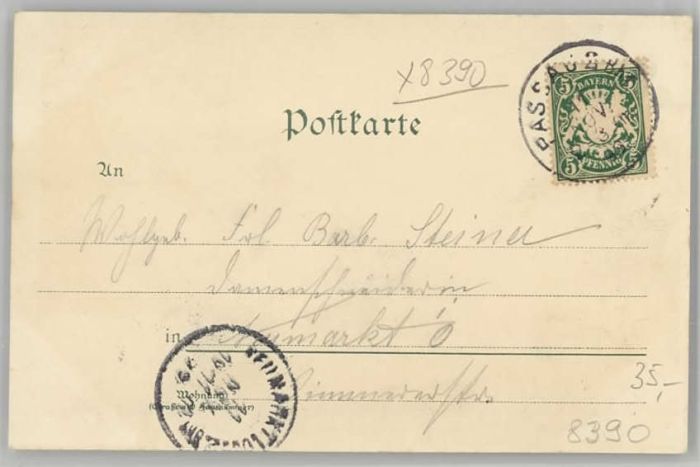 x8390
PASSAU 2
BAYERN
5 5
5 PFENNIG 5
NOV.
Postkarte
An
Wohlgeb. Frl. Barb. Steiner
Damenschneiderin
in Neumarkt O
NEUMARKT
Wohnung
(Straße u. Hausnummer)
35,-
8390